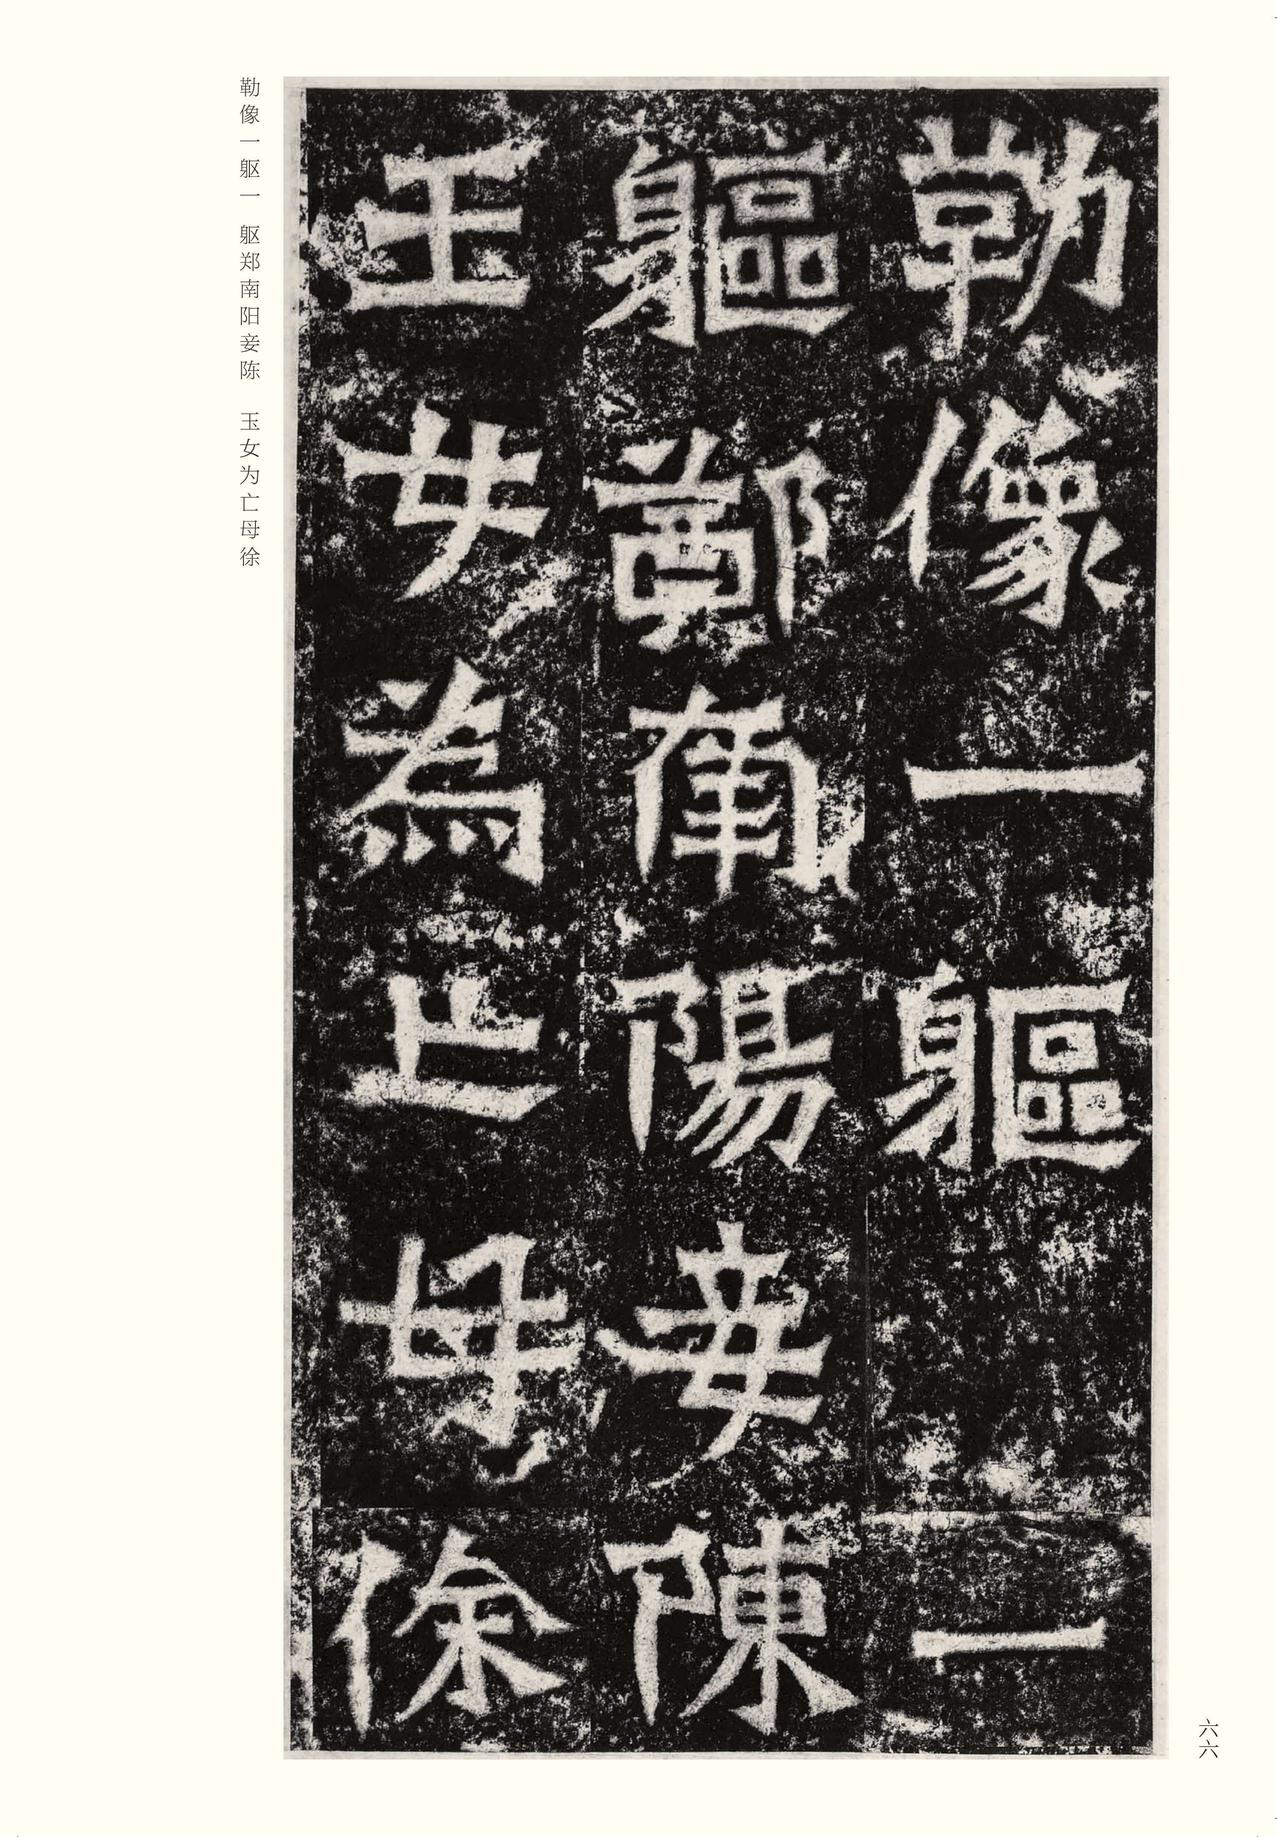 勒像一軀一
軀鄭南陽妾陳
玉女為亡母徐
勒像一躯一 躯郑南阳妾陈 玉女为亡母徐
六六